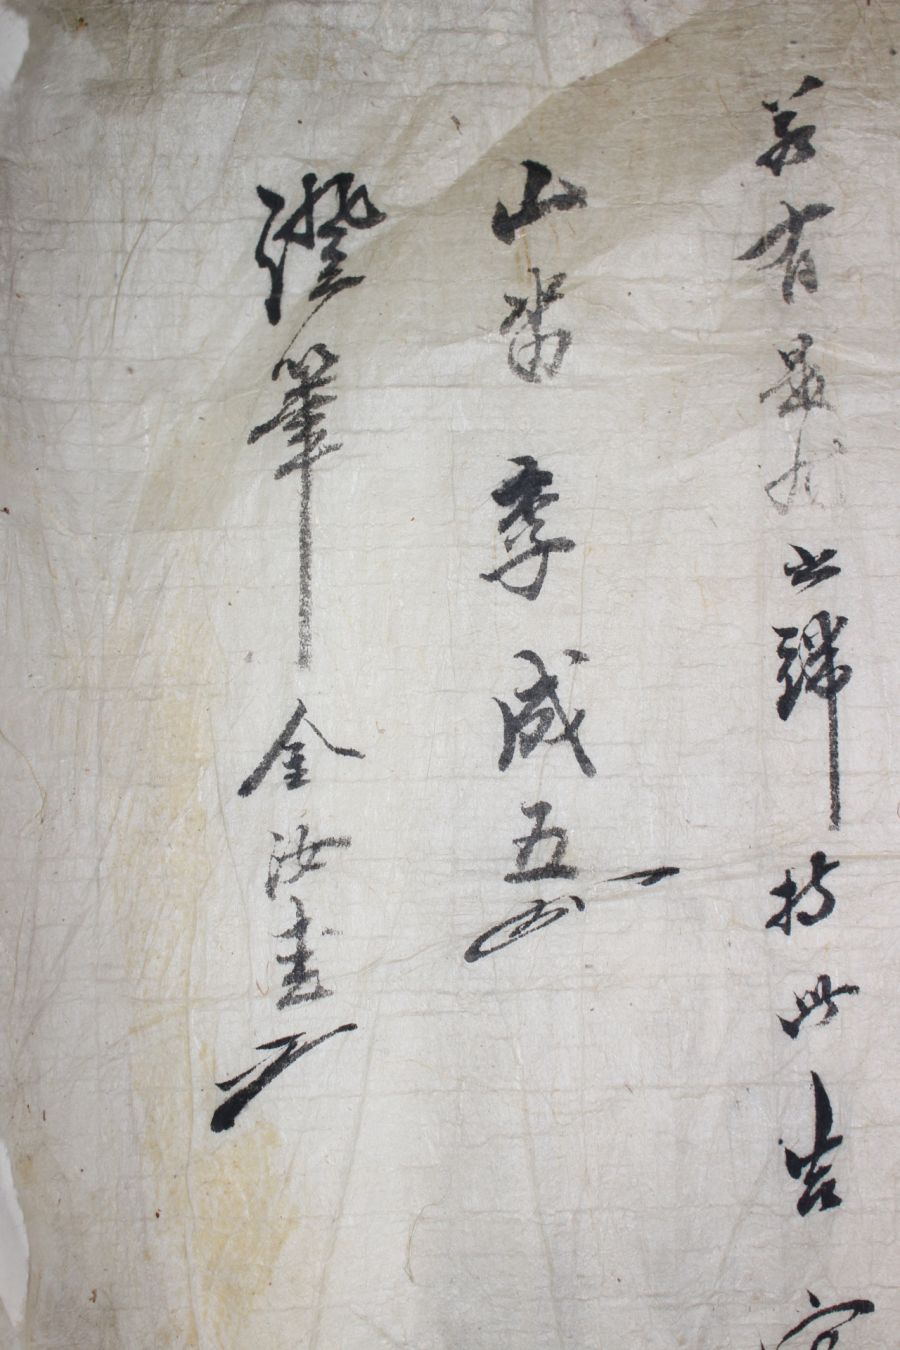 若有是非之端持此告官
山主 李成五
證筆 金汝